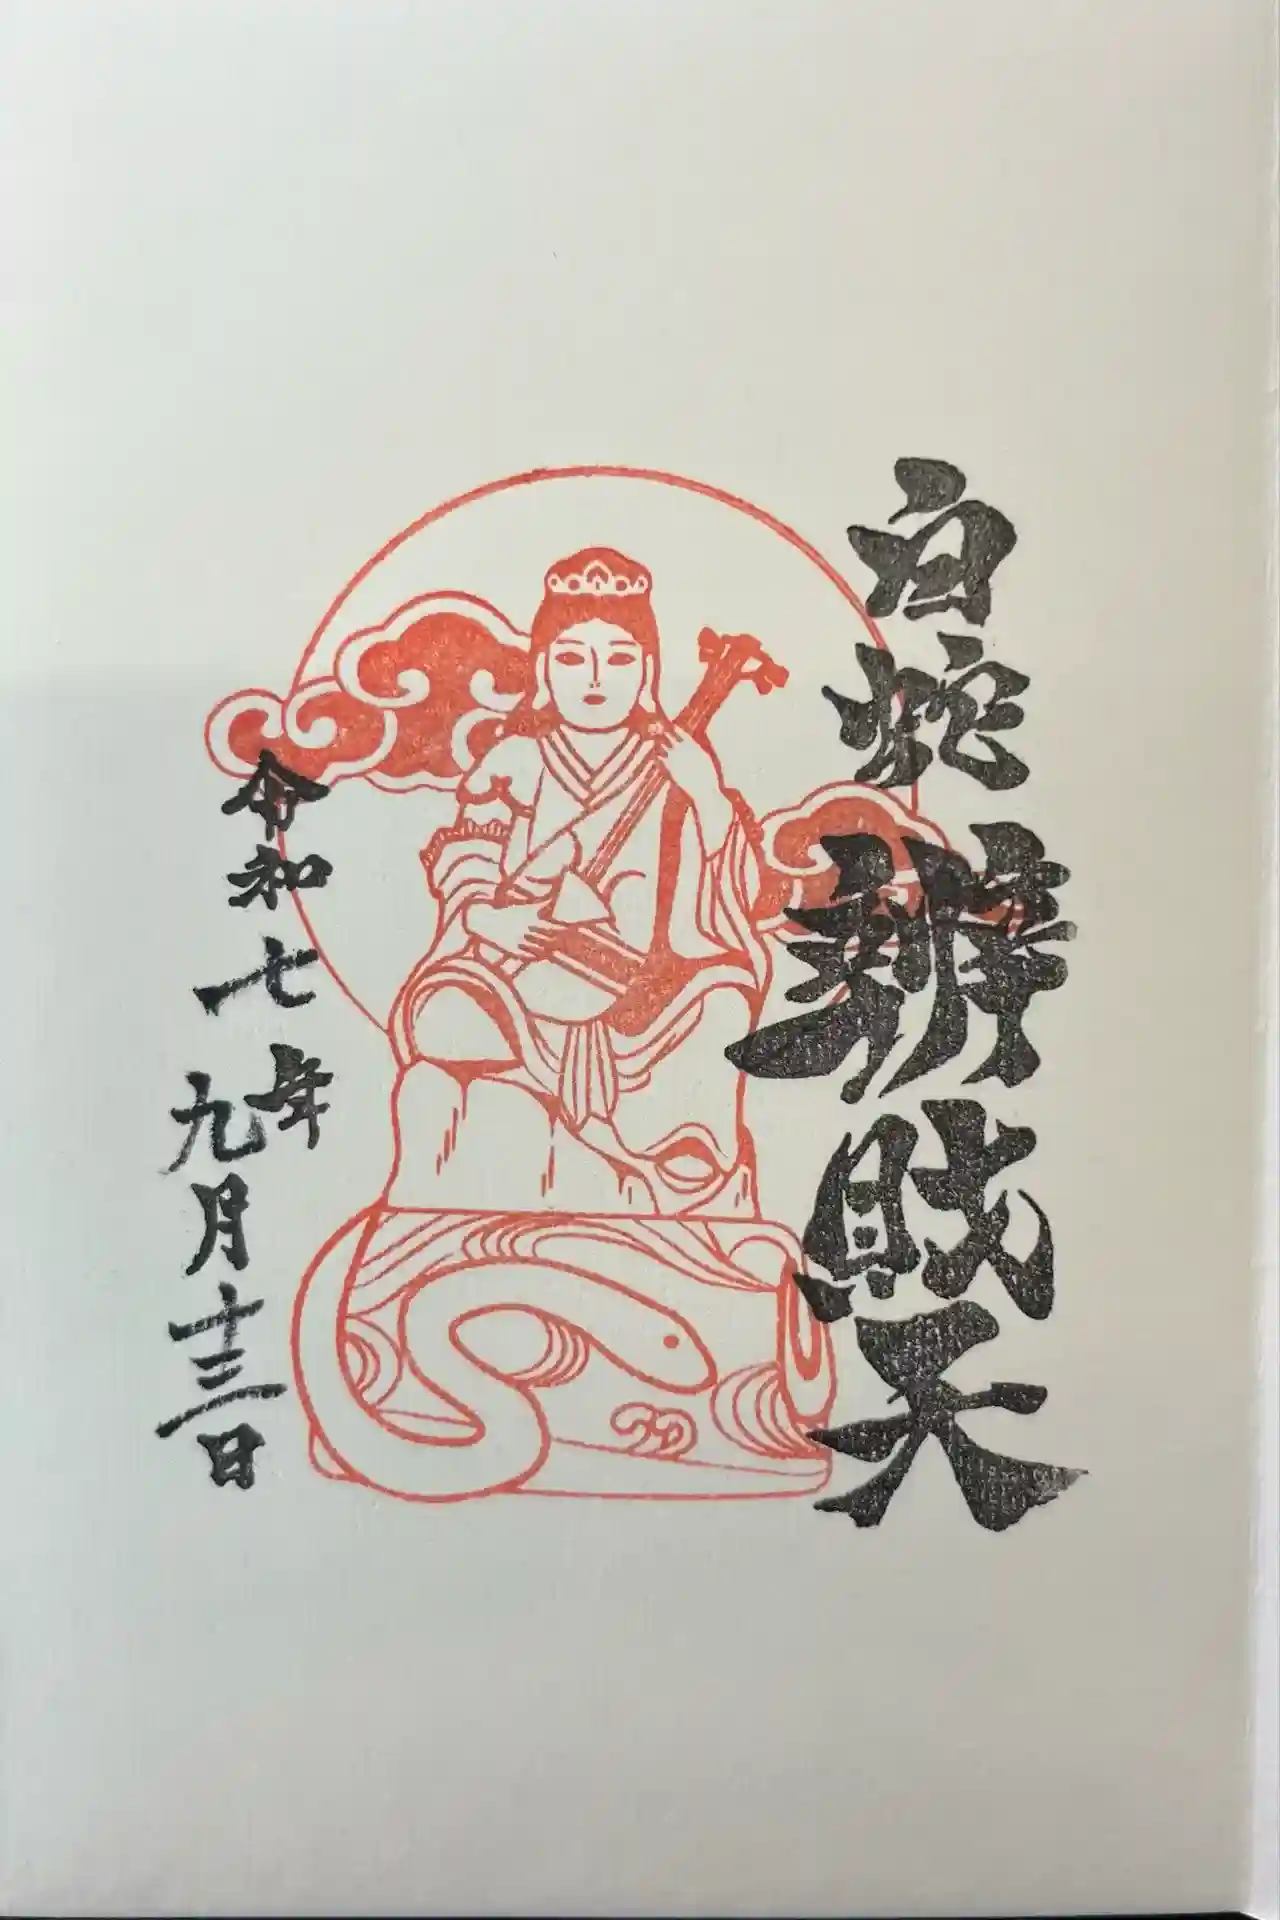 白蛇辨財天
令和七年
九月十三日